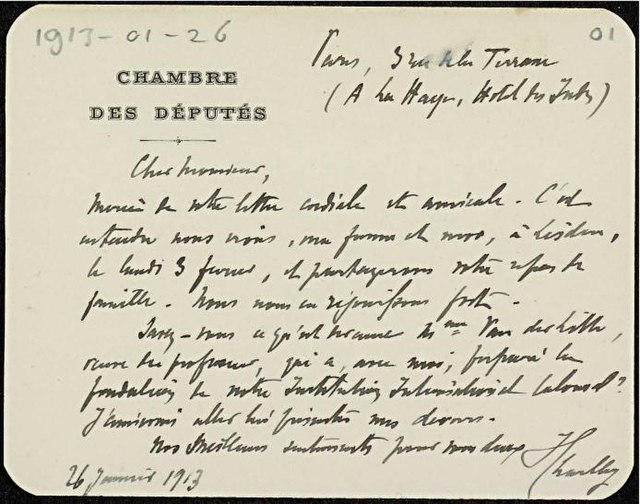 1913-01-26
01
CHAMBRE
DES DÉPUTÉS
Paris, 3 rue de la Terrasse
(A La Haye, Hotel des Indes)
Cher Monsieur,
Merci de votre lettre cordiale et amicale. C'est
entendu nous irons, ma femme et moi, à Leiden,
le lundi 3 fevrier, et partagerons votre repas de
famille. Nous nous en réjouissons fort.
Savez-vous ce qu'est devenue Mme Van der Lith,
veuve du professeur, qui a, avec moi, préparé la
fondation de notre Institution Internationial Colonial?
J'aimerais aller lui présenter mes devoirs.
Nos meilleurs sentiments pour vous deux
26 Janvier 1913